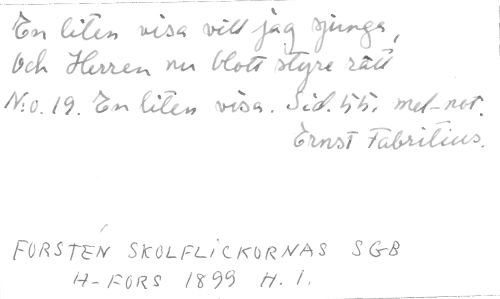 En liten visa vill jag sjunga,
och Herren nu blott styre rätt
N:o. 19. En liten visa. Sid. 55. mel-not.
Ernst Fabritius.
FORSTÉN SKOLFLICKORNAS SGB
H-FORS 1899 H. 1.